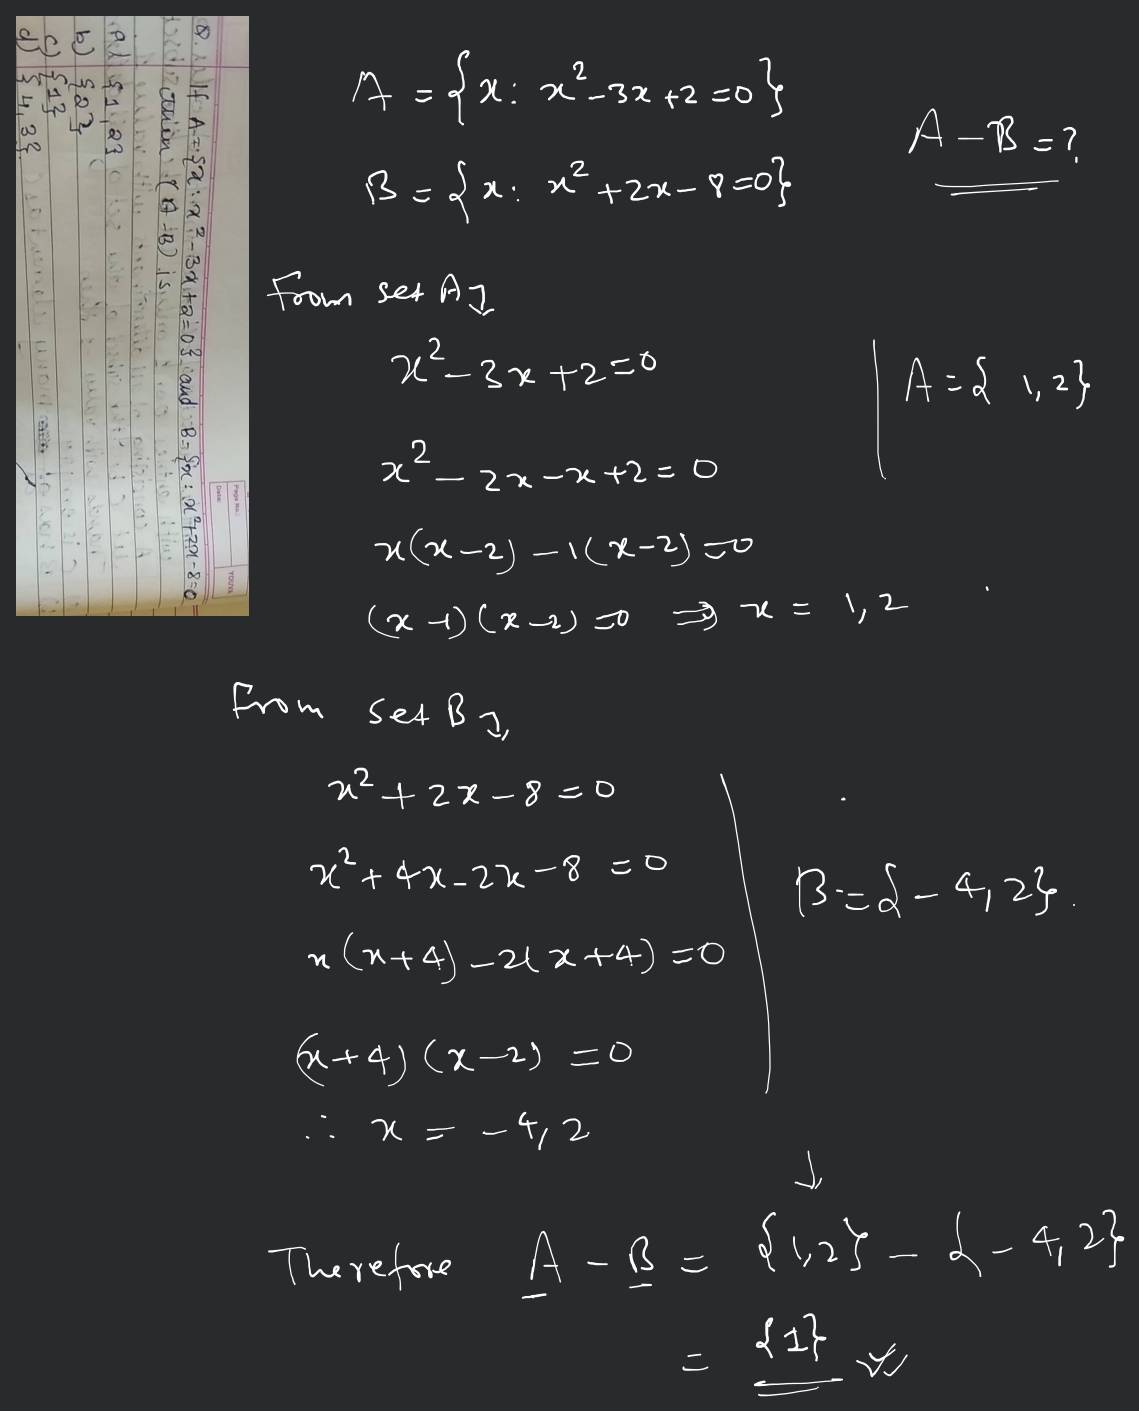 Page No.:
Date:
YOUVA
Q. If A = {x : x² - 3x + 2 = 0} and B = {x : x² + 2x - 8 = 0
Then (A - B) is
a) {1, 2}
b) {2}
c) {1}
d) {4, 3}
A = {x : x² - 3x + 2 = 0}
A - B = ?
B = {x : x² + 2x - 8 = 0}
From set A
x² - 3x + 2 = 0
A = { 1, 2}
x² - 2x - x + 2 = 0
x(x - 2) - 1(x - 2) = 0
(x - 1)(x - 2) = 0 ⇒ x = 1, 2
From set B
x² + 2x - 8 = 0
x² + 4x - 2x - 8 = 0
B = { - 4, 2}.
x(x + 4) - 2(x + 4) = 0
(x + 4) (x - 2) = 0
∴ x = - 4, 2
Therefore A - B = {1, 2} - { - 4, 2}
= {1}